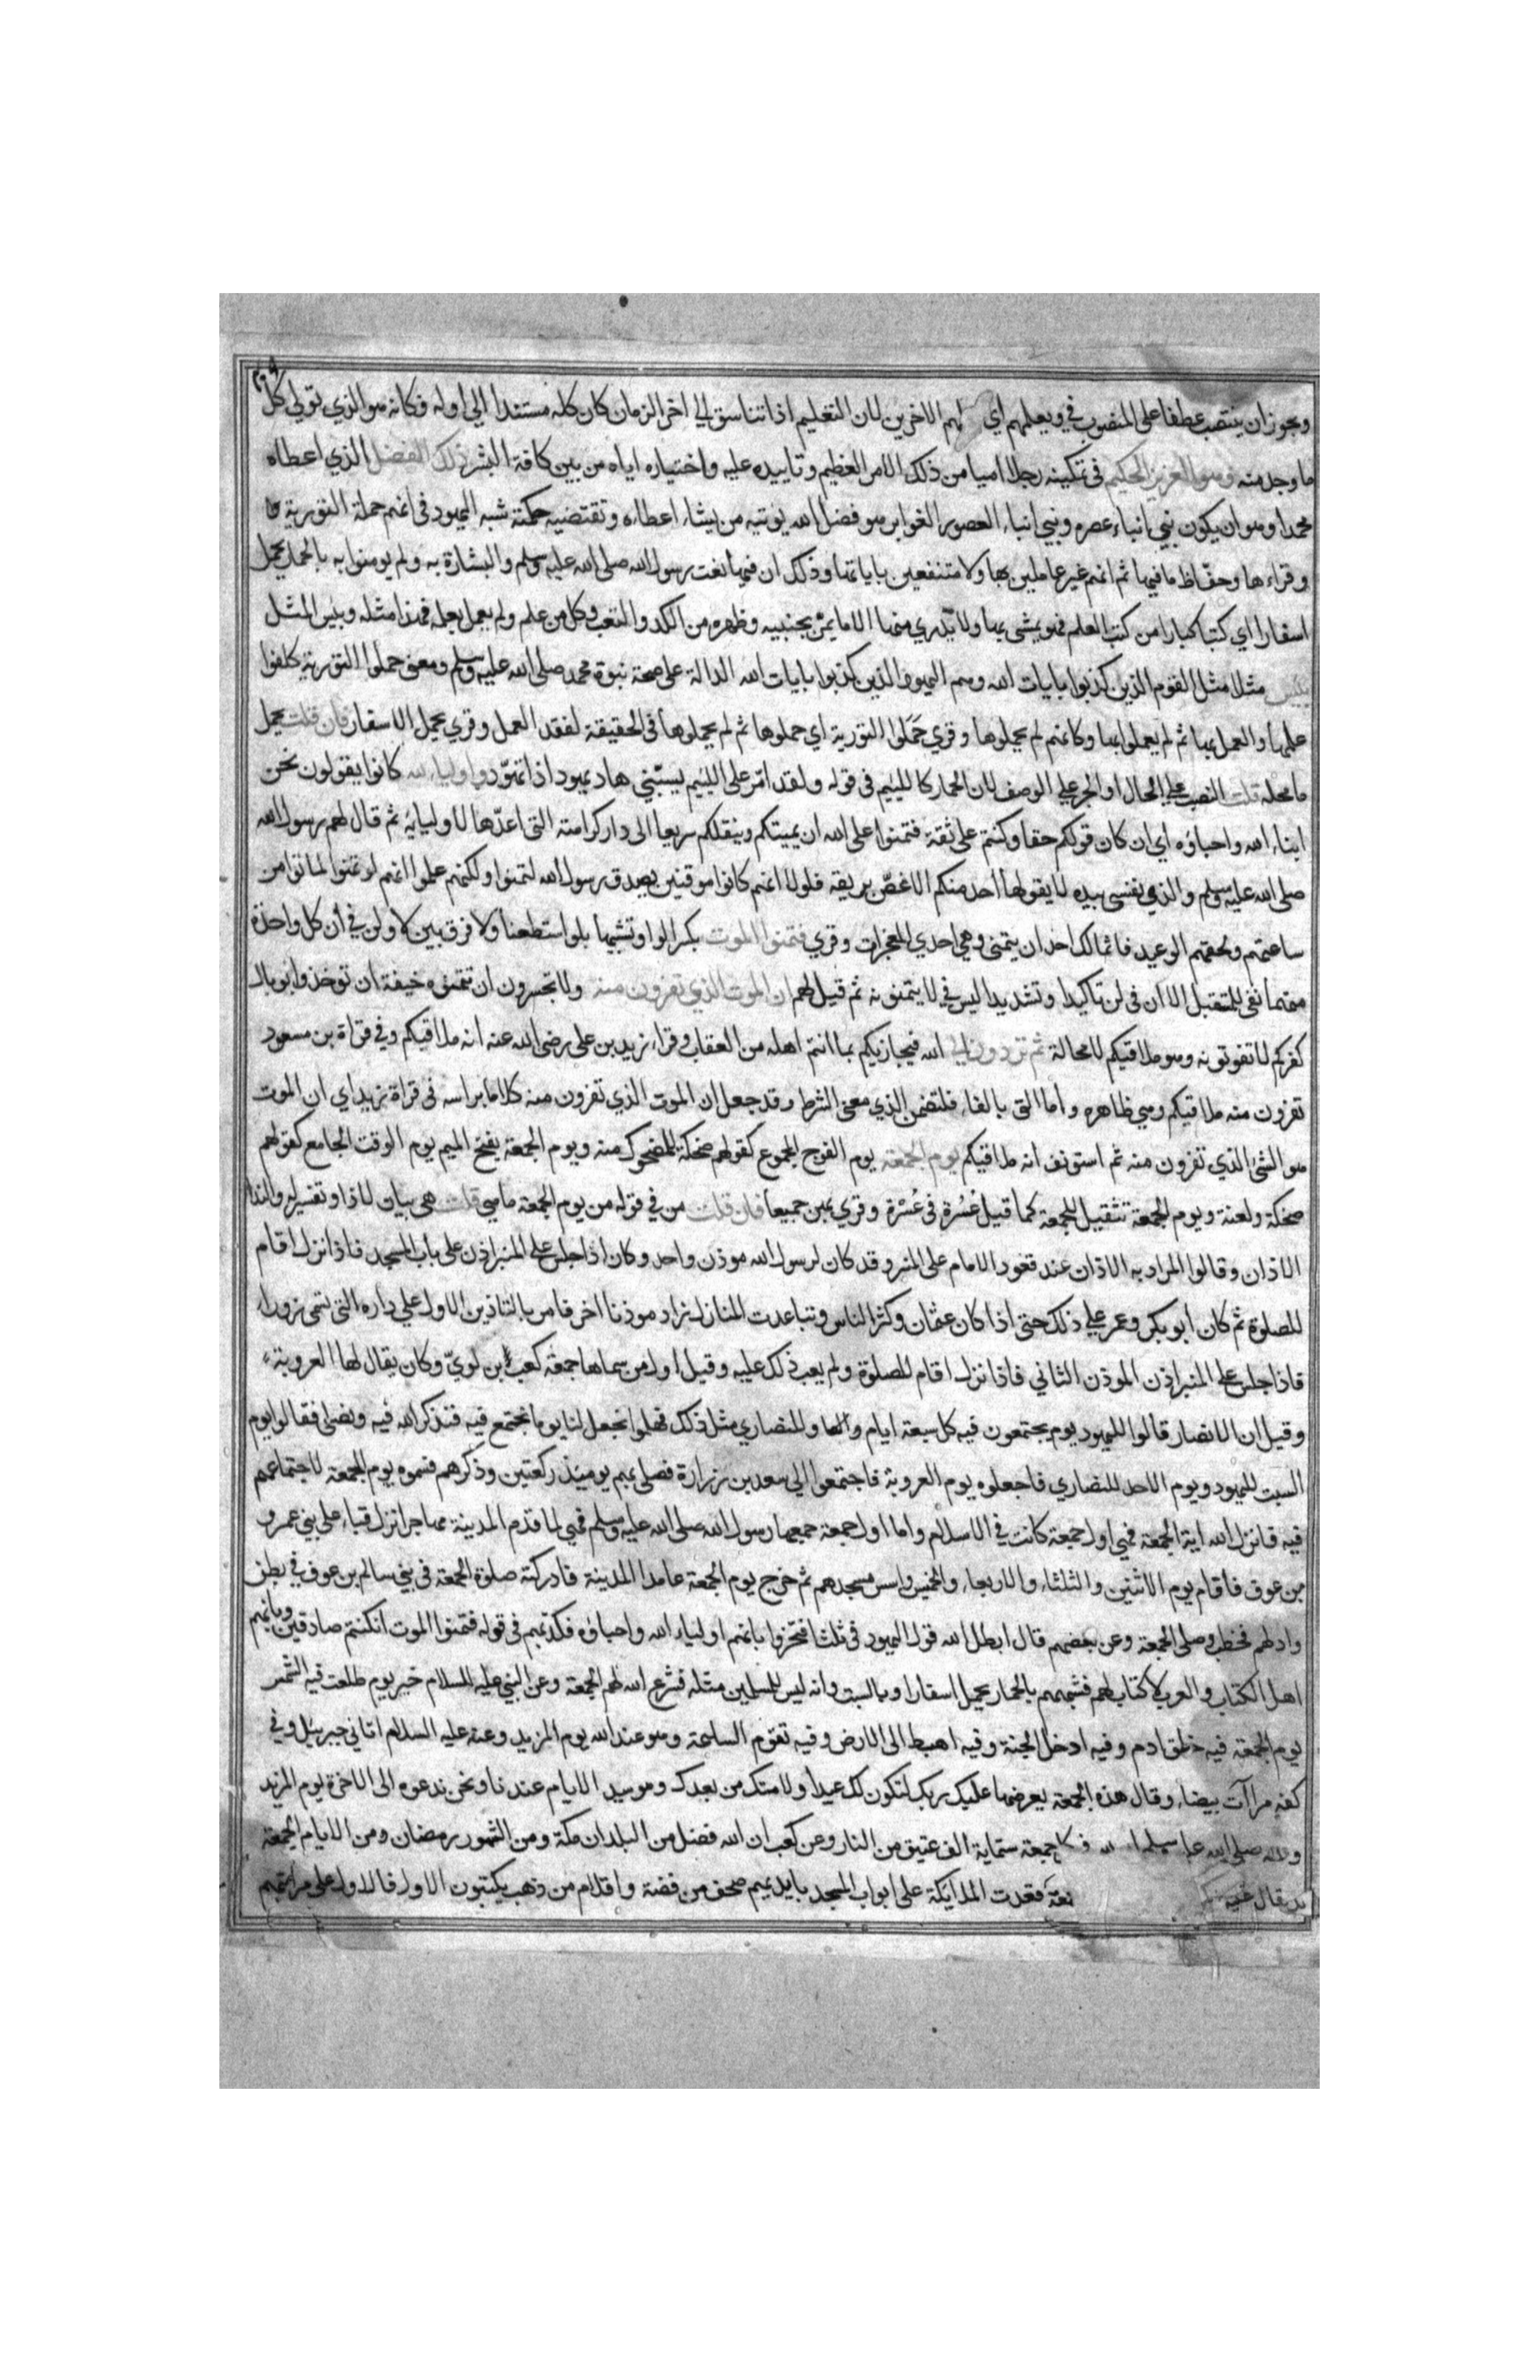 ويجوز ان ينتصب عطفا على المنصوب في ويعلمهم اي الاخرين لان التعليم اذا تناسق الى اخر الزمان كان كله مستندا الي اوله فكانه هو الذي تولى كل
ما وجد منه وهو العزيز الحكيم فى تمكينه رجلا اميا من ذلك الامر العظيم وتاييده عليه واختياره اياه من بين كافة البشر ذلك الفضل الذي اعطاه
محمدا وهو ان يكون نبي انباء عصره ونبي انباء العصور الغوابر هو فضل الله يوتيه من يشاء اعطاءه وتقتضيه حكمته شبه اليهود فى انهم حملة التورية
وقراءها وحفاظ ما فيها ثم انهم غير عاملين بها ولا منتفعين باياتها وذلك ان فيها نعت رسول الله صلى الله عليه وسلم والبشارة به ولم يومنوا به بالحمار يحمل
اسفارا اي كتبا كبارا من كتب العلم فهو يمشى بها ولا يدري منها الا ما يمر بجنبيه وظهره من الكد والتعب وكل من علم ولم يعمل بعلمه فهذا مثله وبئس المثل
بئس مثلا مثل القوم الذين كذبوا بايات الله وهم اليهود الذين كذبوا بايات الله الدالة على صحة نبوة محمد صلى الله عليه وسلم ومعنى حملوا التورية كلفوا
علمها والعمل بها ثم لم يعملوا بها وكانهم لم يحملوها وقري حَمَلوا التورية اي حملوها ثم لم يحملوها فى الحقيقة لفقد العمل وقري يحمل الاسفار فان قلت يحمل
ما محله قلت النصب على الحال او الجر على الوصف لان الحمار كاللئيم فى قوله ولقد امر على اللئيم يسبني هاد يهود اذا تهود اولياء لله كانوا يقولون نحن
ابناء الله واحباؤه اي ان كان قولكم حقا وكنتم على ثقة فتمنوا على الله ان يميتكم وينقلكم سريعا الى دار كرامته التى اعدها لاوليايه ثم قال لهم رسول الله
صلى الله عليه وسلم والذي نفسى بيده لا يقولها احد منكم الا غص بريقه فلولا انهم كانوا موقنين بصدق رسول الله لتمنوا ولكنهم علموا انهم لو تمنوا لماتوا من
ساعتهم ولحقهم الوعيد فما تمالك احد ان يتمنى وهي احدي المعجزات وقري فتمنوا الموت بكسر الواو تشبيها بلو استطعنا ولا فرق بين لا ولن في ان كل واحدة
منهما نفى للمستقبل الا ان فى لن تاكيدا وتشديدا ليس في لا يتمنونه ثم قيل لهم ان الموت الذي تفرون منه ولا تجسرون ان تتمنوه خيفة ان توخذوا بوبال
كفركم لا تفوتونه وهو ملاقيكم لا محالة ثم تردون الى الله فيجازيكم بما انتم اهله من العقاب وقراء زيد بن على رضى الله عنه انه ملاقيكم وفي قراة بن مسعود
تفرون منه ملاقيكم وهي ظاهره واما التى بالفاء فلتضمن الذي معنى الشرط وقد جعل ان الموت الذي تفرون منه كلاما براسه فى قراة زيد اي ان الموت
هو الشئ الذي تفرون منه ثم استونف انه ملاقيكم يوم الجمعة يوم الفوج المجموع كقولهم ضحكة للمضحوك منه ويوم الجمعة بفتح الميم يوم الوقت الجامع كقولهم
ضحكة ولعنة ويوم الجمعة تثقيل للجمعة كما قيل عُسُرة فى عُسْرة وقري بهن جميعا فان قلت من في قوله من يوم الجمعة ما هي قلت هي بيان لاذا وتفسير له والندا
الاذان وقالوا المراد به الاذان عند قعود الامام على المنبر وقد كان لرسول الله موذن واحد وكان اذا جلس على المنبر اذن على باب المسجد فاذا نزل اقام
للصلوة ثم كان ابو بكر وعمر على ذلك حتى اذا كان عثمان وكثر الناس وتباعدت المنازل زاد موذنا اخر فامر بالتاذين الاول على داره التى تسمى زوراء
فاذا جلس على المنبر اذن الموذن الثاني فاذا نزل اقام للصلوة ولم يعب ذلك عليه وقيل اول من سماها جمعة كعب بن لوي وكان يقال لها العروبة
وقيل ان الانصار قالوا لليهود يوم يجتمعون فيه كل سبعة ايام وللنصاري مثل ذلك فهلموا نجعل لنا يوما نجتمع فيه فنذكر الله فيه ونصلى فقالوا يوم
السبت لليهود ويوم الاحد للنصاري فاجعلوه يوم العروبة فاجتمعوا الى سعد بن زرارة فصلى بهم يومئذ ركعتين وذكرهم فسموه يوم الجمعة لاجتماعهم
فيه فانزل الله اية الجمعة فهي اول جمعة كانت في الاسلام واما اول جمعة جمعها رسول الله صلى الله عليه وسلم فهي لما قدم المدينة مهاجرا نزل قباء على بني عمرو
بن عوف فاقام يوم الاثنين والثلثاء والاربعاء والخميس واسس مسجدهم ثم خرج يوم الجمعة عامدا المدينة فادركته صلوة الجمعة فى بني سالم بن عوف في بطن
واد لهم فخطب وصلى الجمعة وعن بعضهم قال ابطل الله قول اليهود فى ثلث افتخروا بانهم اولياء الله واحباؤه فكذبهم فى قوله فتمنوا الموت ان كنتم صادقين وبانهم
اهل الكتاب والعرب لا كتاب لهم فشبههم بالحمار يحمل اسفارا وبالسبت وانه ليس للمسلمين مثله فشرع الله لهم الجمعة وعن النبي عليه السلام خير يوم طلعت فيه الشمس
يوم الجمعة فيه خلق ادم وفيه ادخل الجنة وفيه اهبط الى الارض وفيه تقوم الساعة وهو عند الله يوم المزيد وعنه عليه السلام اتاني جبريل وفي
كفه مراآت بيضاء وقال هذه الجمعة يعرضها عليك ربك لتكون لك عيدا ولامتك من بعدك وهو سيد الايام عندنا ونحن ندعوه الى الاخرة يوم المزيد
صلى الله جمعة ستماية الف عتيق من النار وعن كعب ان الله فضل من البلدان مكة ومن الشهور رمضان ومن الايام الجمعة
قعدت الملائكة على ابواب المسجد بايديهم صحف من فضة واقلام من ذهب يكتبون الاول فالاول على مراتبهم